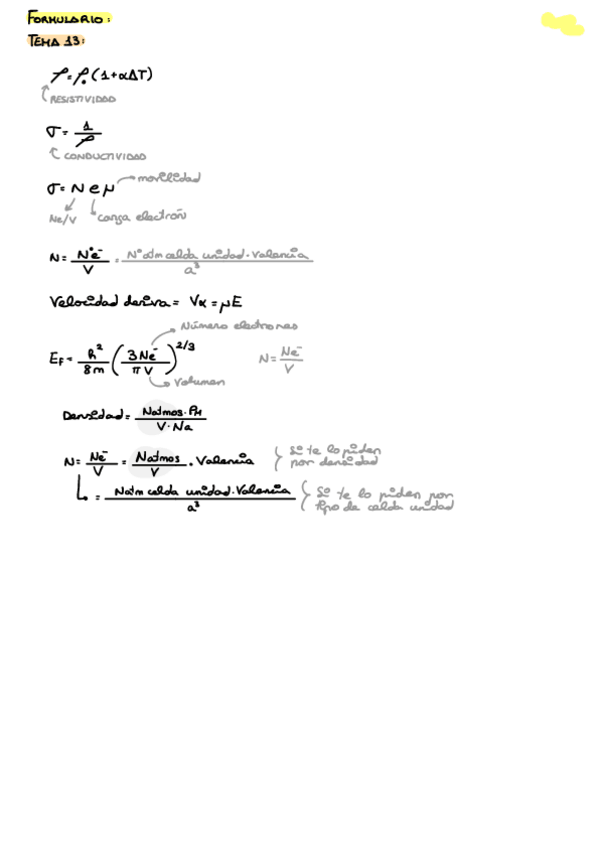 FORMULARIO:
TEMA 13:
ρ = ρ₀ (1+αΔT)
RESISTIVIDAD
σ = 1/ρ
CONDUCTIVIDAD
σ = N e μ → movilidad
Ne/V carga electrón
N = Nºe⁻/V = Nº atm celda unidad · Valencia / a³
Velocidad deriva = Vα = μE
Número electrones
E_F = h²/8m (3Ne⁻/πV)^2/3 N = Ne⁻/V
Volumen
Densidad = Natmos · PM / V · Na
N = Ne⁻/V = Natmos/V · Valencia } Si te lo piden por densidad
= Natm celda unidad · Valencia / a³ } Si te lo piden por tipo de celda unidad